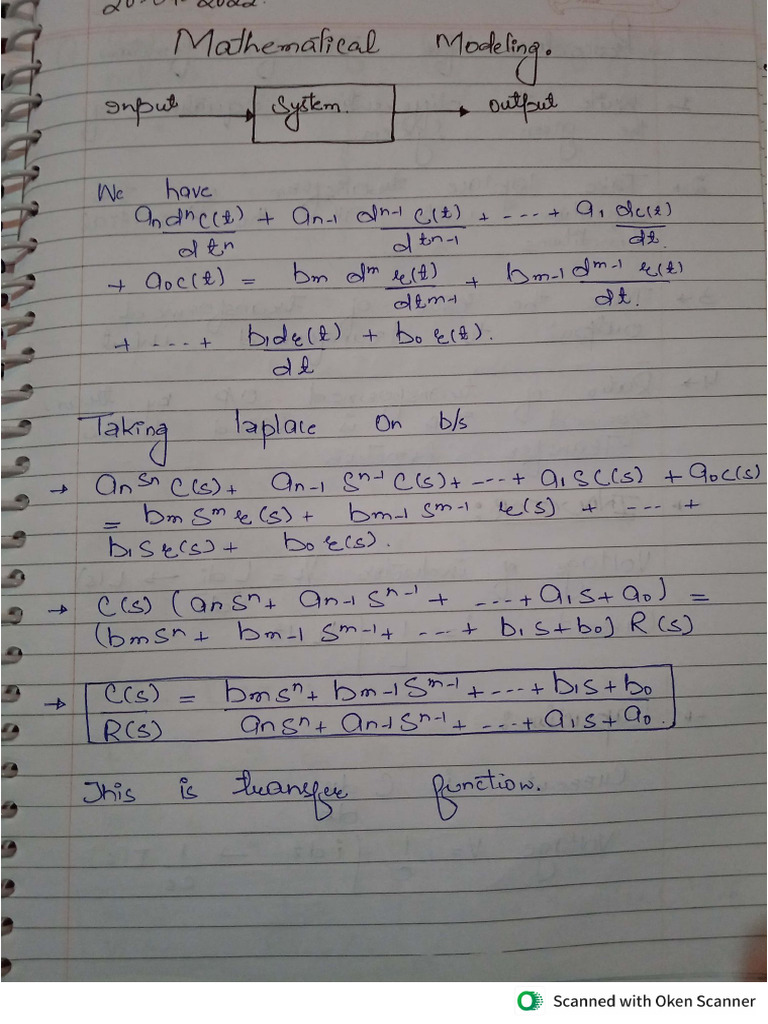 20-01-2022.
Mathematical Modeling.
Input System. Output
We have
an dⁿc(t)/dtⁿ + an-1 dⁿ⁻¹ c(t)/dtⁿ⁻¹ + ---- + a1 dc(t)/dt.
+ a0c(t) = bm dᵐ r(t)/dtᵐ⁻¹ + bm-1 dᵐ⁻¹ r(t)/dt.
+ ---- + b1dr(t)/dt + b0 r(t).
Taking laplace on b/s
→ an sⁿ C(s) + an-1 sⁿ⁻¹ C(s) + ---- + a1 s C(s) + a0 c(s)
= bm sᵐ r(s) + bm-1 sᵐ⁻¹ r(s) + ---- +
b1 s r(s) + b0 r(s).
→ C(s) (an sⁿ + an-1 sⁿ⁻¹ + ---- + a1 s + a0) =
(bm sⁿ + bm-1 sᵐ⁻¹ + ---- + b1 s + b0) R(s)
→ C(s)/R(s) = bm sⁿ + bm-1 sᵐ⁻¹ + ---- + b1 s + b0/an sⁿ + an-1 sⁿ⁻¹ + ---- + a1 s + a0.
This is transfer function.
Scanned with Oken Scanner